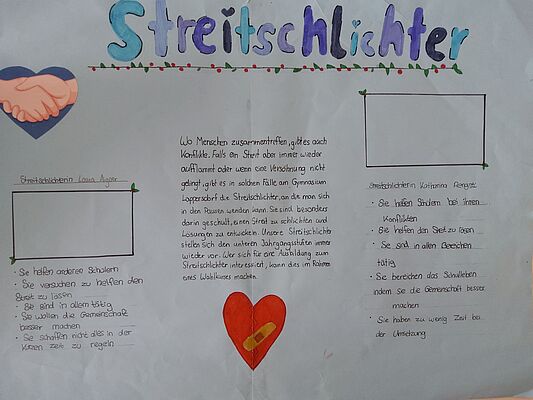 Streitschlichter
Streitschlichterin Laura
Sie helfen anderen Schülern
Sie versuchen zu helfen den
Streit zu lösen
Sie sind in allem tätig
Sie wollen die Gemeinschaft
besser machen
Sie schaffen nicht alles in der
kurzen Zeit zu regeln
Wo Menschen zusammentreffen, gibt es auch
Konflikte. Falls ein Streit aber immer wieder
aufflammt oder wenn eine Versöhnung nicht
gelingt, gibt es in solchen Fälle am Gymnasium
Lappersdorf die Streitschlichter, an die man sich
in den Pausen wenden kann. Sie sind besonders
darin geschult, einen Streit zu schlichten und
Lösungen zu entwickeln. Unsere Streitschlichter
stellen sich den unteren Jahrgangsstufen immer
wieder vor. Wer sich für eine Ausbildung zum
Streitschlichter interessiert, kann dies im Rahmen
eines Wahlkurses machen.
Streitschlichterin Katharina
Sie helfen Schülern bei ihren
Konflikten
Sie helfen den Streit zu lösen
Sie sind in allen Bereichen
tätig
Sie bereichen das Schulleben
indem sie die Gemeinschaft besser
machen
Sie haben zu wenig Zeit bei
der Umsetzung